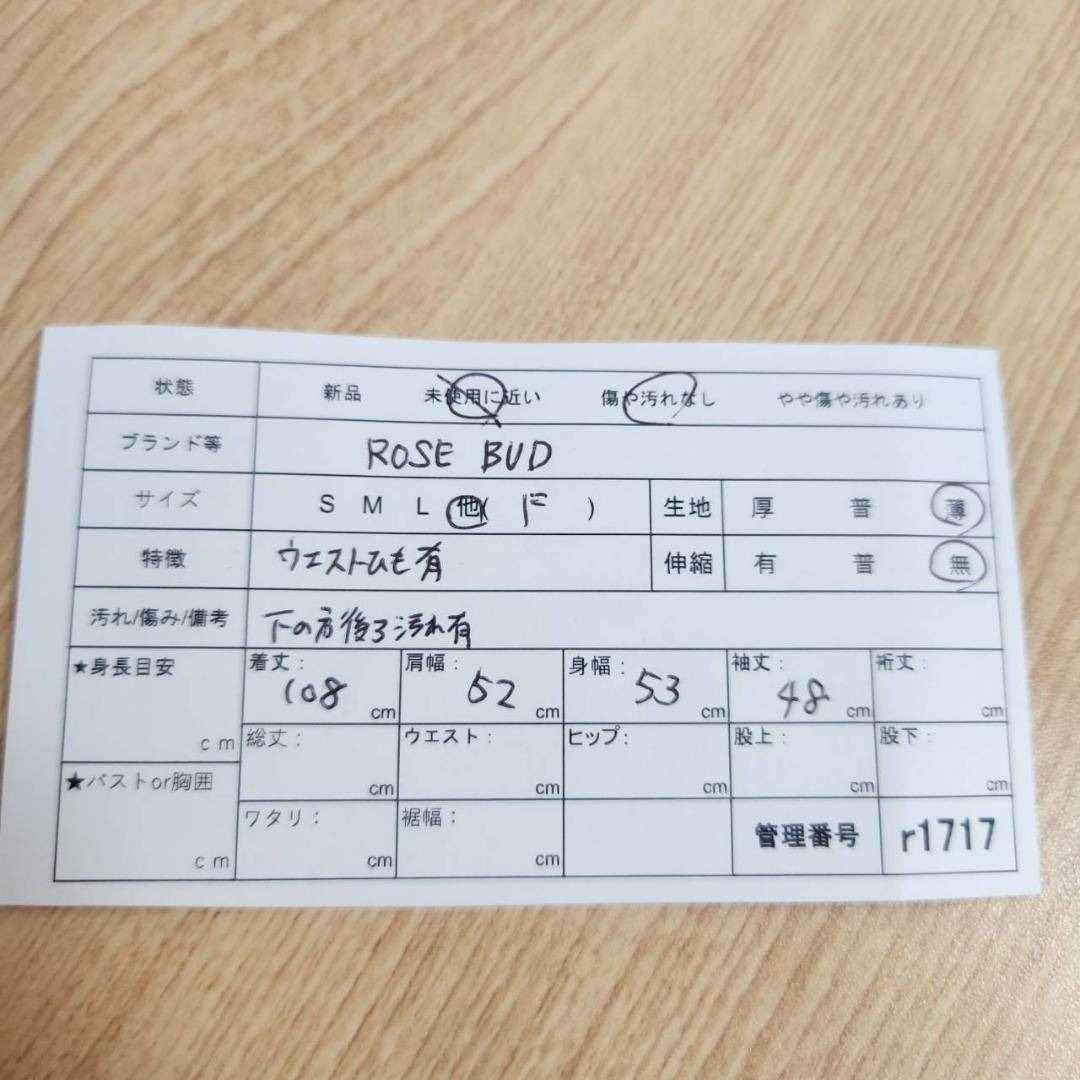 状態 新品 未使用に近い 傷や汚れなし やや傷や汚れあり
ブランド等 ROSE BUD
サイズ S M L 他( ) 生地 厚 普 薄
特徴 ウエストひも有 伸縮 有 普 無
汚れ/傷み/備考 下の方後ろ汚れ有
★身長目安 cm 着丈: 108 cm 肩幅: 52 cm 身幅: 53 cm 袖丈: 48 cm 裄丈: cm
総丈: cm ウエスト: cm ヒップ: cm 股上: cm 股下: cm
★バストor胸囲 cm ワタリ: cm 裾幅: cm 管理番号 r1717